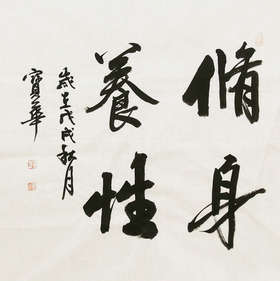 脩身
養性
歲在戊戌秋月
寶華